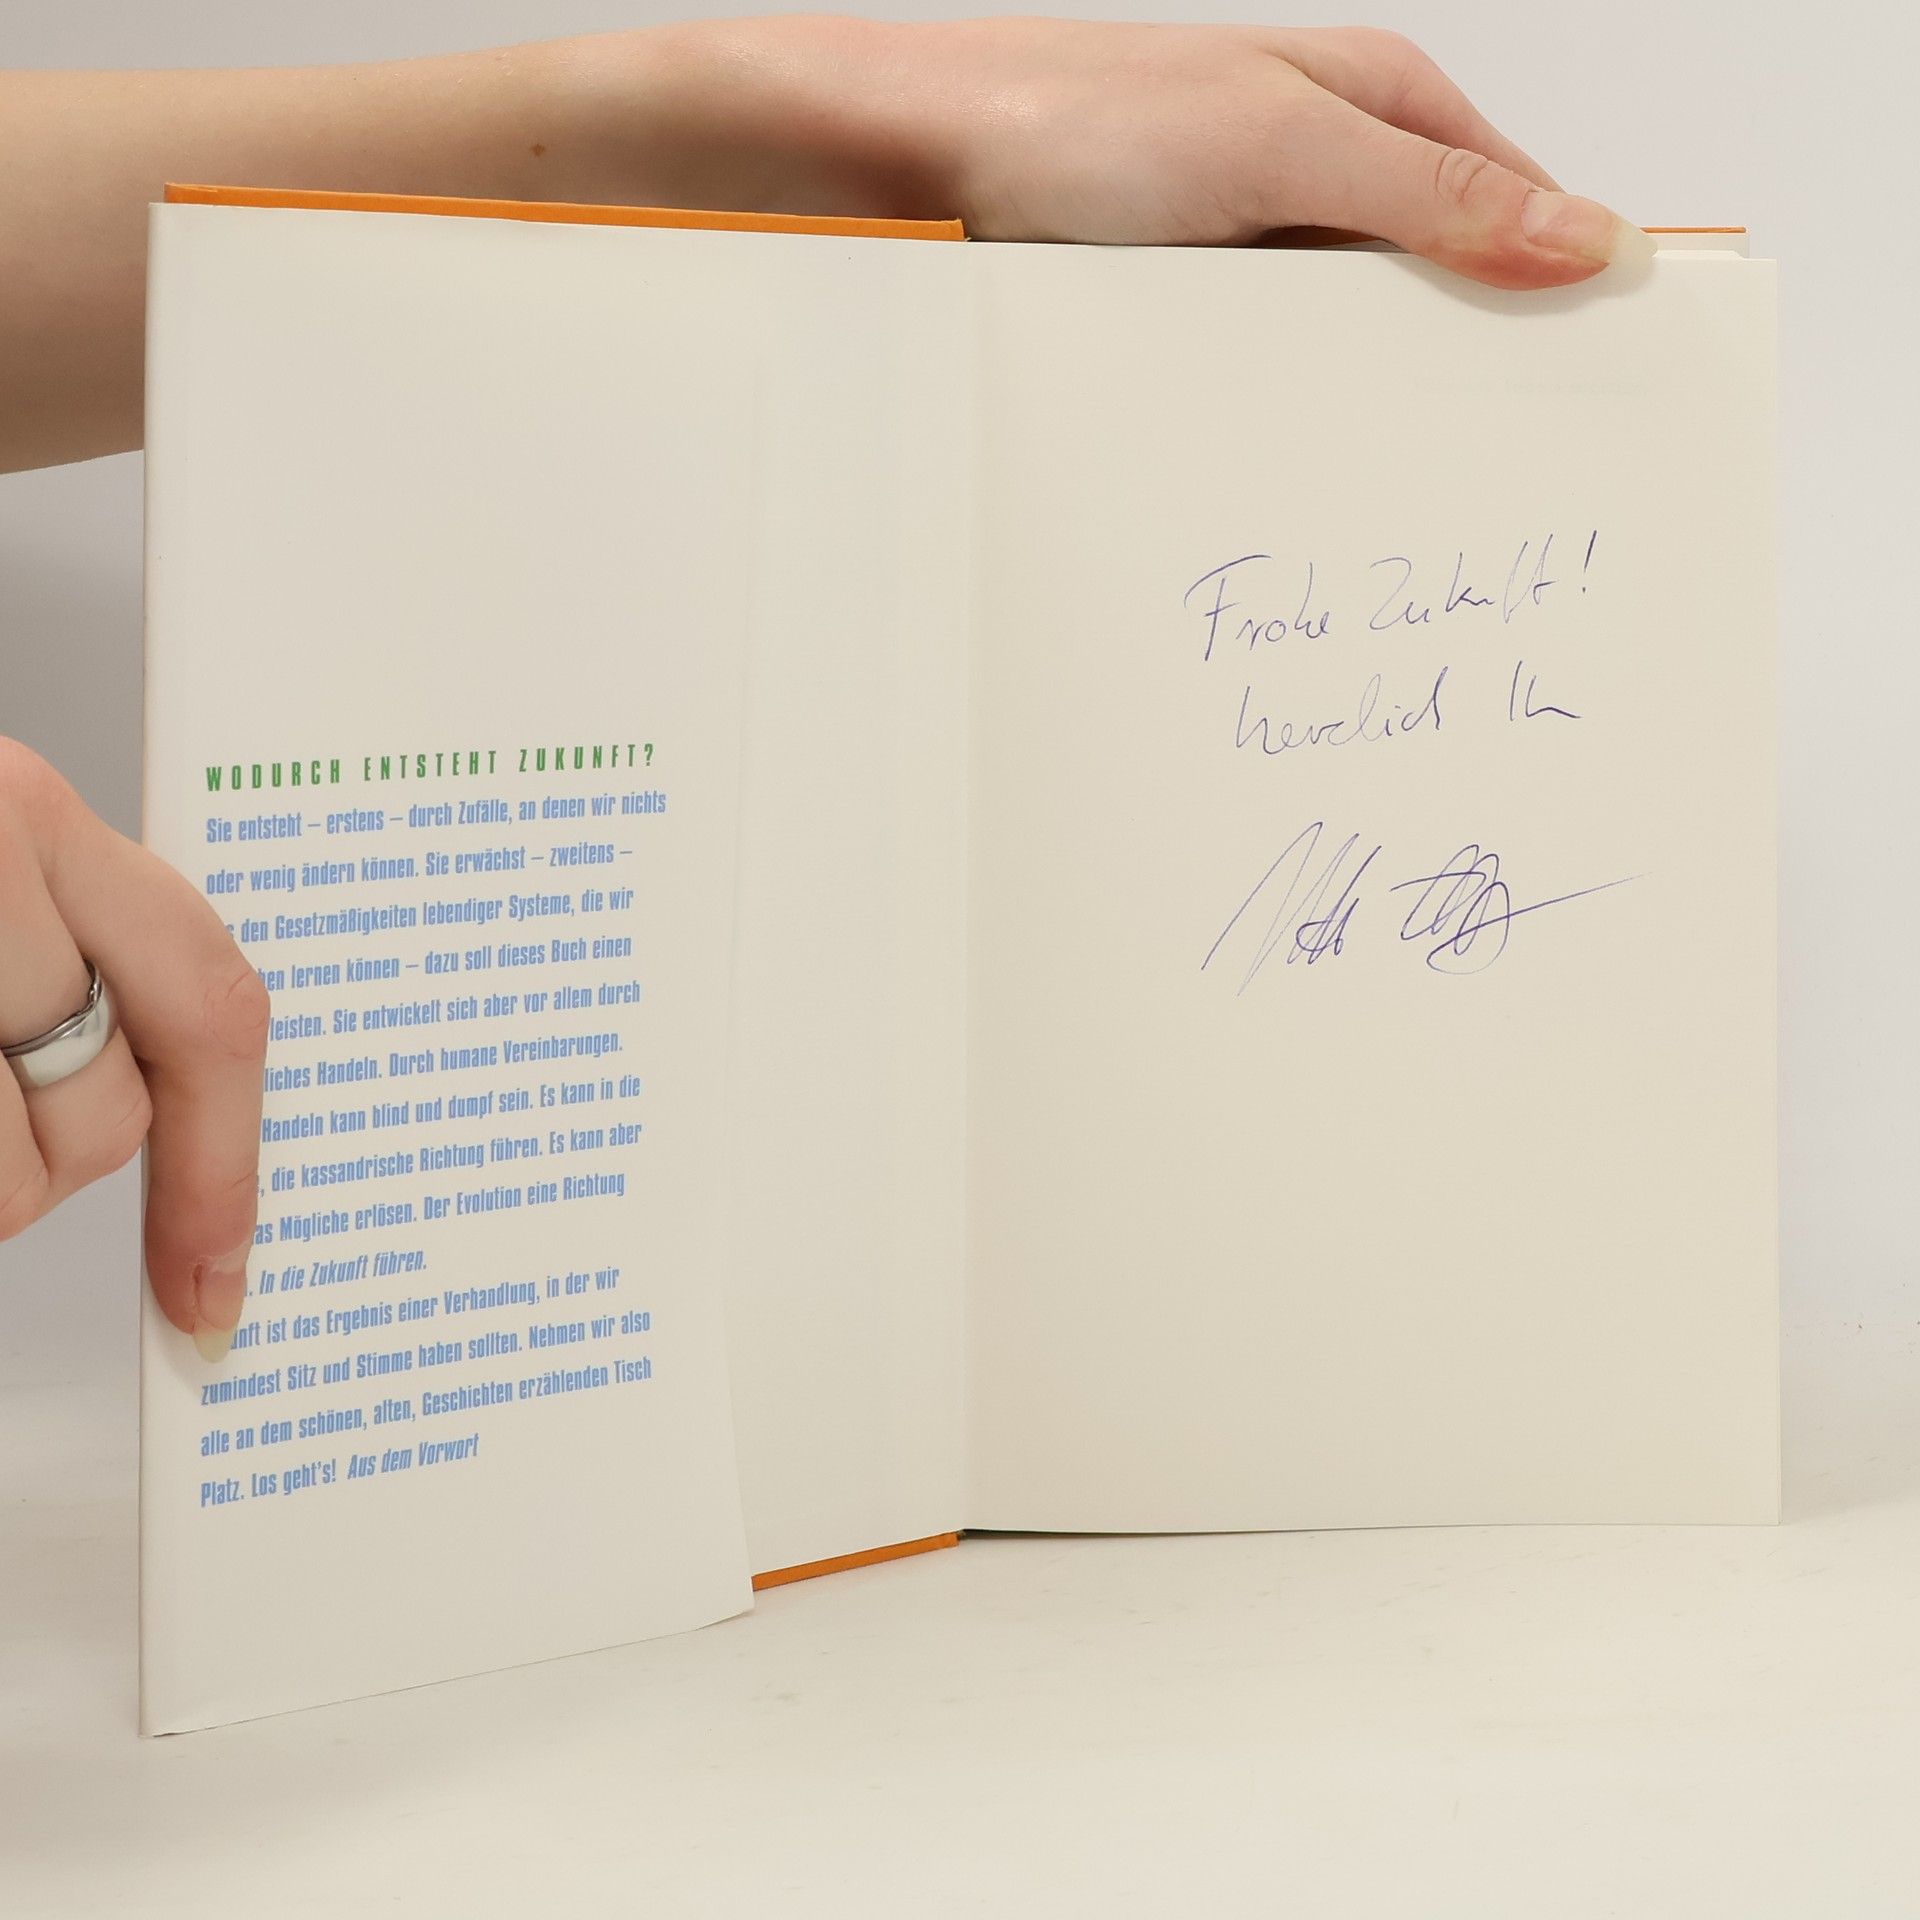 WODURCH ENTSTEHT ZUKUNFT?
Sie entsteht – erstens – durch Zufälle, an denen wir nichts
oder wenig ändern können. Sie erwächst – zweitens –
den Gesetzmäßigkeiten lebendiger Systeme, die wir
lernen können – dazu soll dieses Buch einen
leisten. Sie entwickelt sich aber vor allem durch
liches Handeln. Durch humane Vereinbarungen.
Handeln kann blind und dumpf sein. Es kann in die
, die kassandrische Richtung führen. Es kann aber
as Mögliche erlösen. Der Evolution eine Richtung
. In die Zukunft führen.
nft ist das Ergebnis einer Verhandlung, in der wir
zumindest Sitz und Stimme haben sollten. Nehmen wir also
alle an dem schönen, alten, Geschichten erzählenden Tisch
Platz. Los geht's! Aus dem Vorwort
Frohe Zukunft!
herzlich Ihr